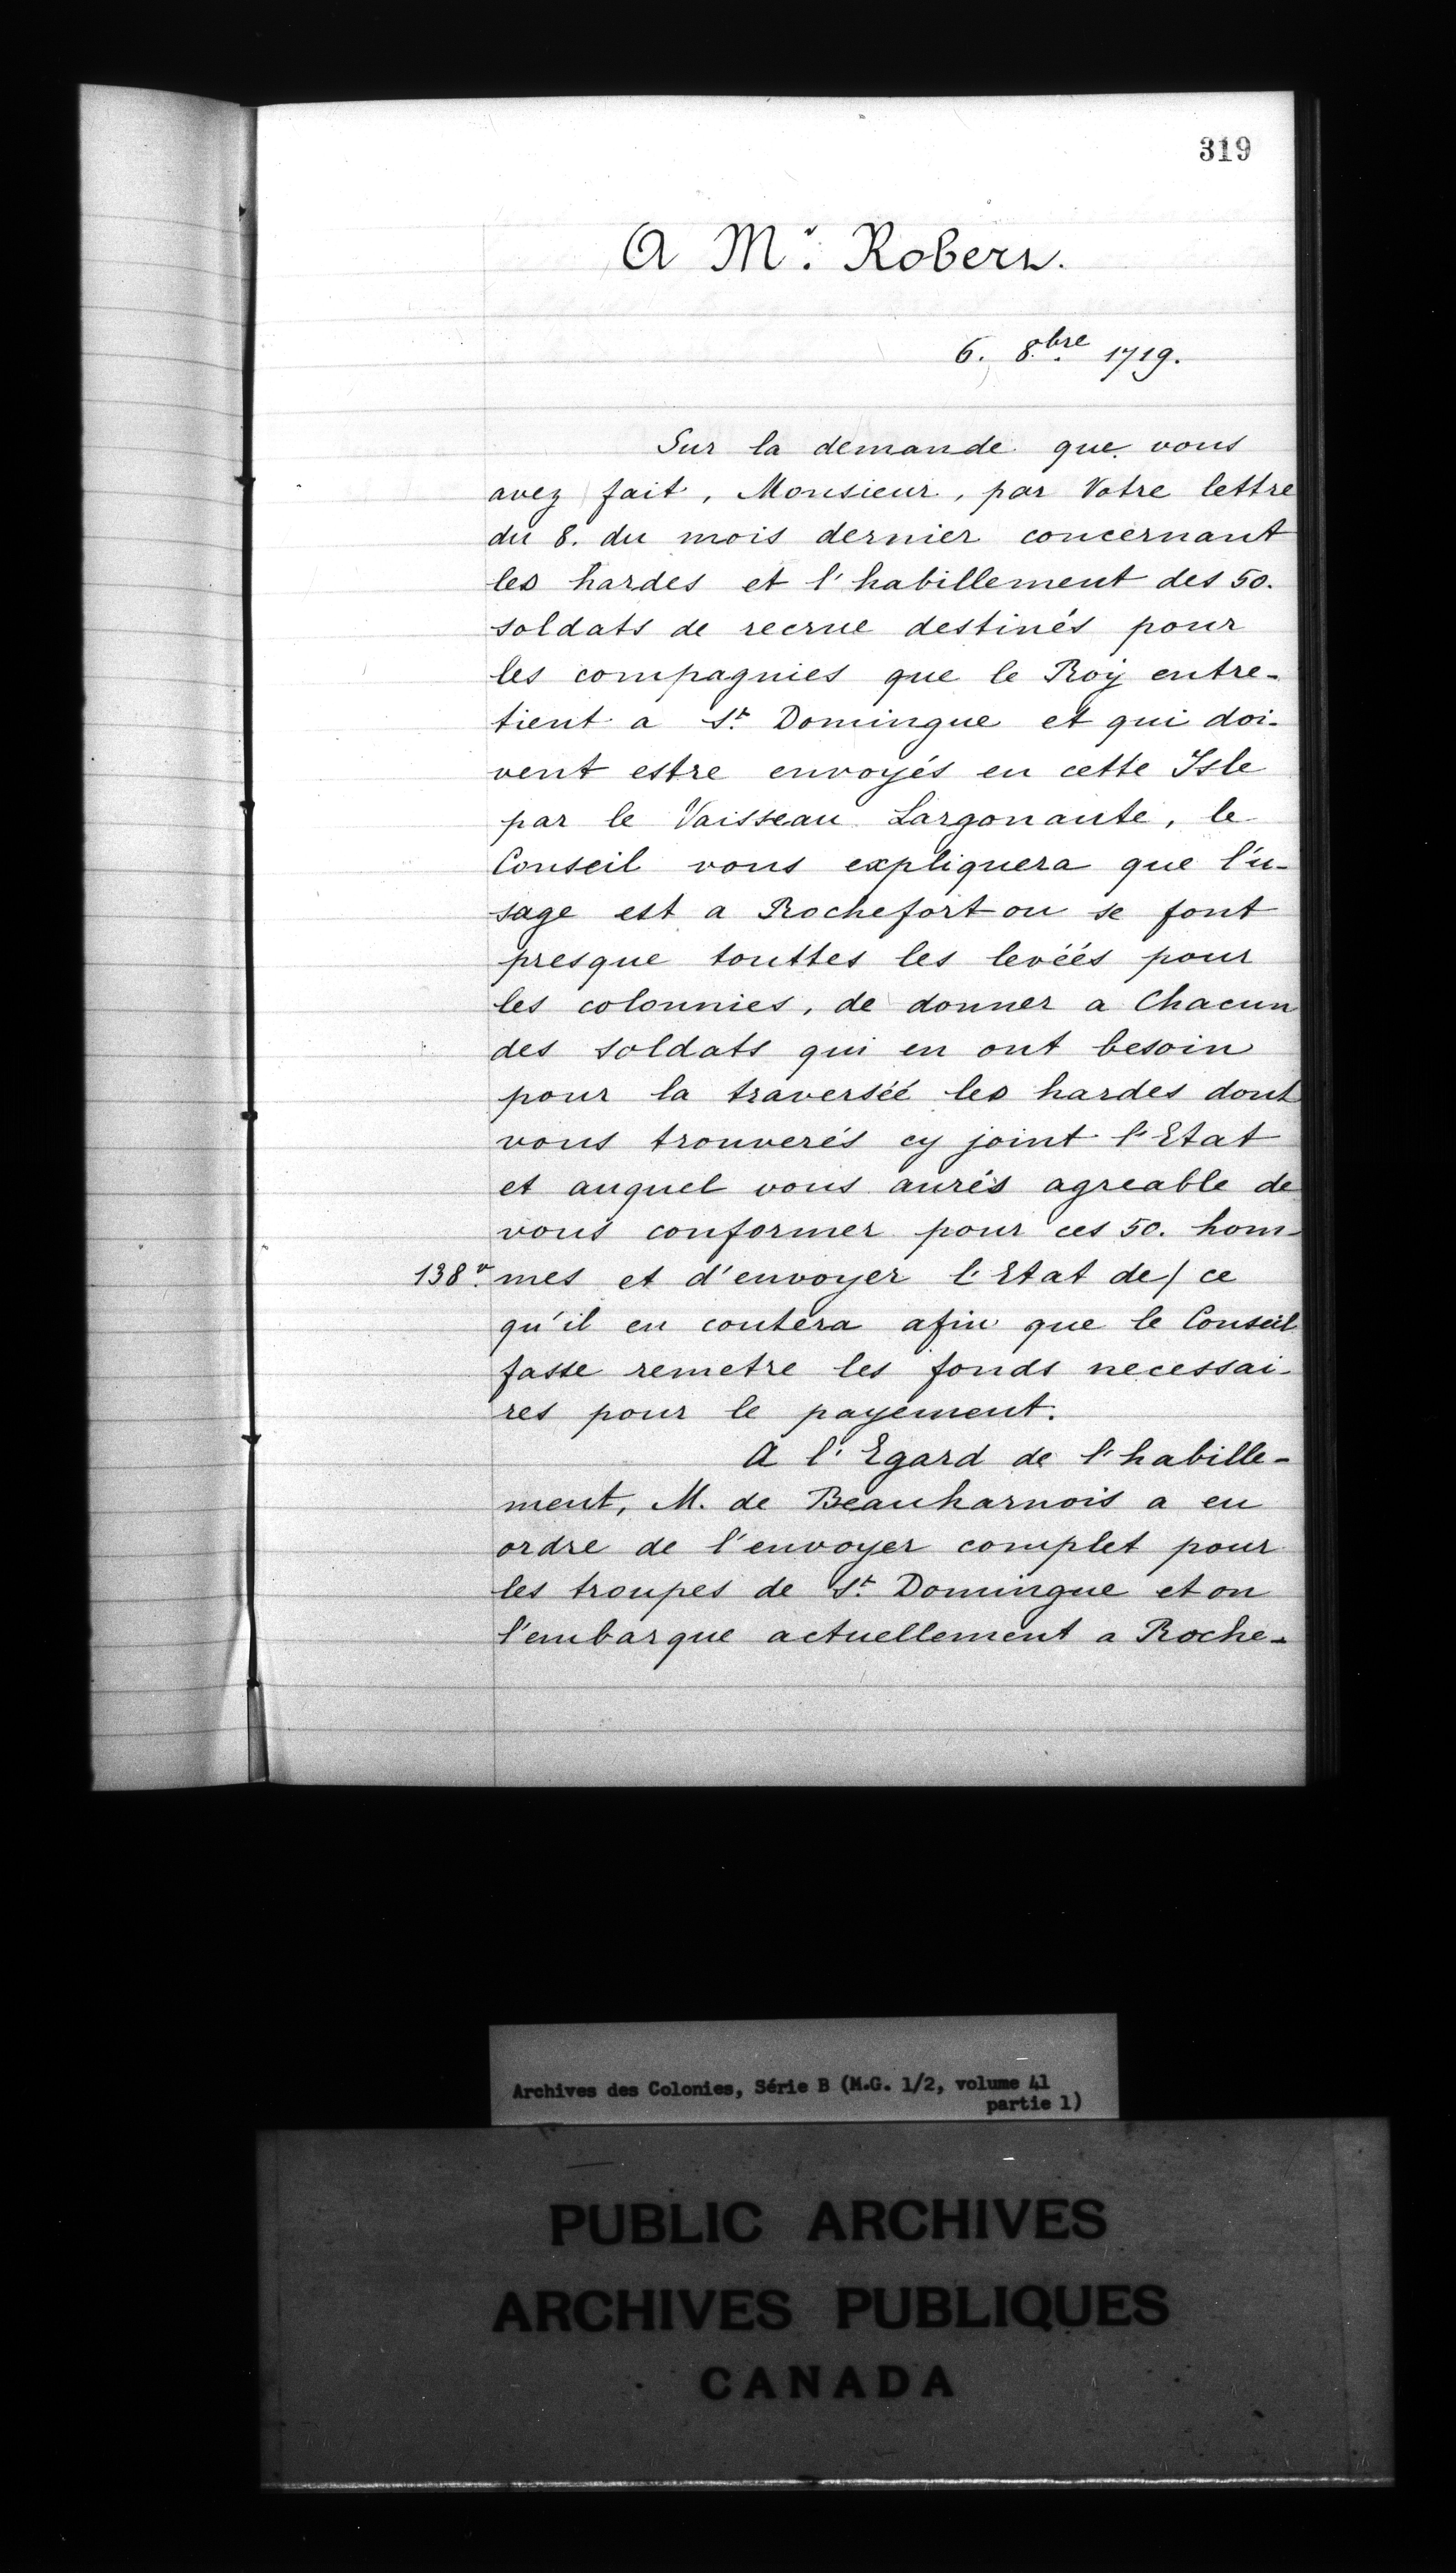 319
A Mr. Robert.
6. 8bre 1719.
Sur la demande que vous
avez fait, Monsieur, par Votre lettre
du 8. du mois dernier concernant
les hardes et l'habillement des 50.
soldats de recrue destinés pour
les compagnies que le Roy entre-
tient a St. Domingue et qui doi-
vent estre envoyés en cette Isle
par le Vaisseau Largonaute, le
Conseil vous expliquera que l'u-
sage est a Rochefort ou se font
presque touttes les levéés pour
les colonnies, de donner a Chacun
des soldats qui en ont besoin
pour la traverséé les hardes dont
vous trouverés cy joint l'Etat
et auquel vous aurés agreable de
vous conformer pour ces 50. hom-
138v. mes et d'envoyer l'Etat de/ ce
qu'il en coutera afin que le Conseil
fasse remetre les fonds necessai-
res pour le payement.
A l'Egard de l'habille-
ment, M. de Beauharnois a eu
ordre de l'envoyer complet pour
les troupes de St. Domingue et on
l'embarque actuellement a Roche-
Archives des Colonies, Série B (M.G. 1/2, volume 41
partie 1)
PUBLIC ARCHIVES
ARCHIVES PUBLIQUES
CANADA